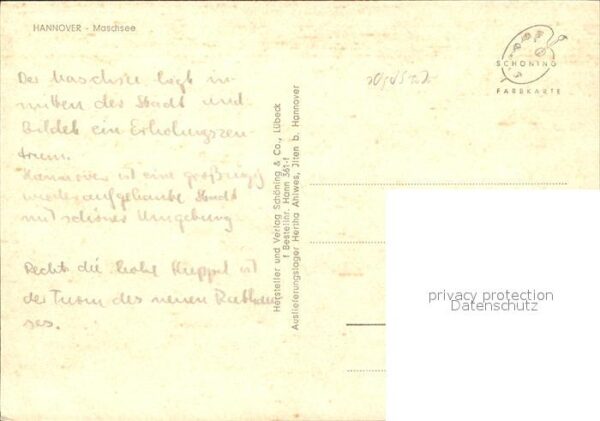 HANNOVER - Maschsee
SCHÖNING
FARBKARTE
Der Maschsee liegt in-
mitten der Stadt und
Bildet ein Erholungszen-
trum.
Hannover ist eine großzügig
wiederaufgebaute Stadt
mit schöner Umgebung
Rechts die hohe Kuppel ist
der Turm des neuen Rathau-
ses.
Hersteller und Verlag Schöning & Co., Lübeck
f Bestellnr. Hann 361-f
Auslieferungslager Hertha Ahlwes, Jlten b. Hannover
privacy protection
Datenschutz